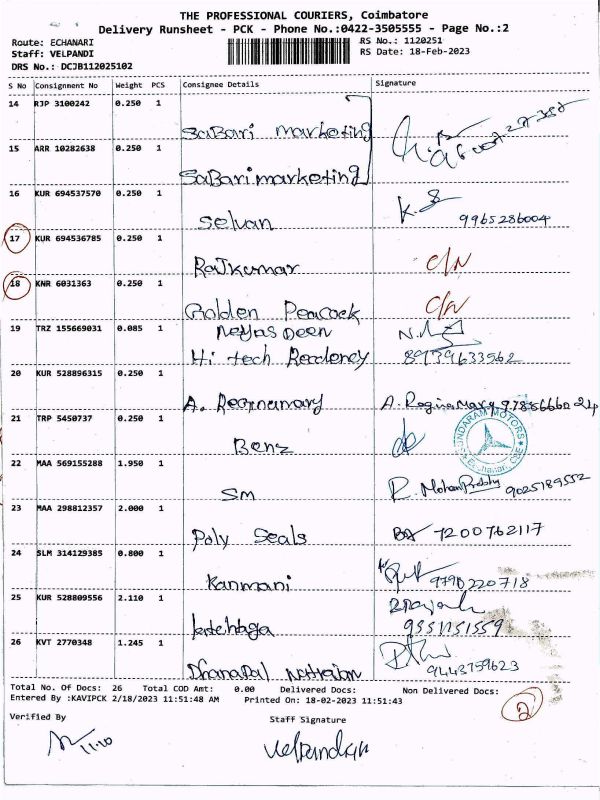 THE PROFESSIONAL COURIERS, Coimbatore
Delivery Runsheet - PCK - Phone No.:0422-3505555 - Page No.:2
Route: ECHANARI
RS No.: 1120251
Staff: VELPANDI
RS Date: 18-Feb-2023
DRS No.: DCJB112025102
S No Consignment No Weight PCS Consignee Details Signature
14 RJP 3100242 0.250 1
SaBari marketing
15 ARR 10282638 0.250 1
SaBari marketing
16 KUR 694537570 0.250 1
Selvan K.S 9965286004
17 KUR 694536785 0.250 1
Rajkumar C/N
18 KNR 6031363 0.250 1
Golden Peacock C/N
19 TRZ 155669031 0.085 1
Hi tech 8939633562
20 KUR 528896315 0.250 1
A. A. Regina Mary
21 TRP 5450737 0.250 1
Benz
SUNDARAM MOTORS
22 MAA 569155288 1.950 1
SM R. Mohan 9025189552
23 MAA 298812357 2.000 1
Poly Seals 7200762117
24 SLM 314129385 0.800 1
Kanmani 9790220718
25 KUR 528809556 2.110 1
26 KVT 2770348 1.245 1
Dhanapal 9443759623
Total No. Of Docs: 26 Total COD Amt: 0.00 Delivered Docs: Non Delivered Docs:
2
Entered By :KAVIPCK 2/18/2023 11:51:48 AM Printed On: 18-02-2023 11:51:43
Verified By
Staff Signature
11.10
Velpandian